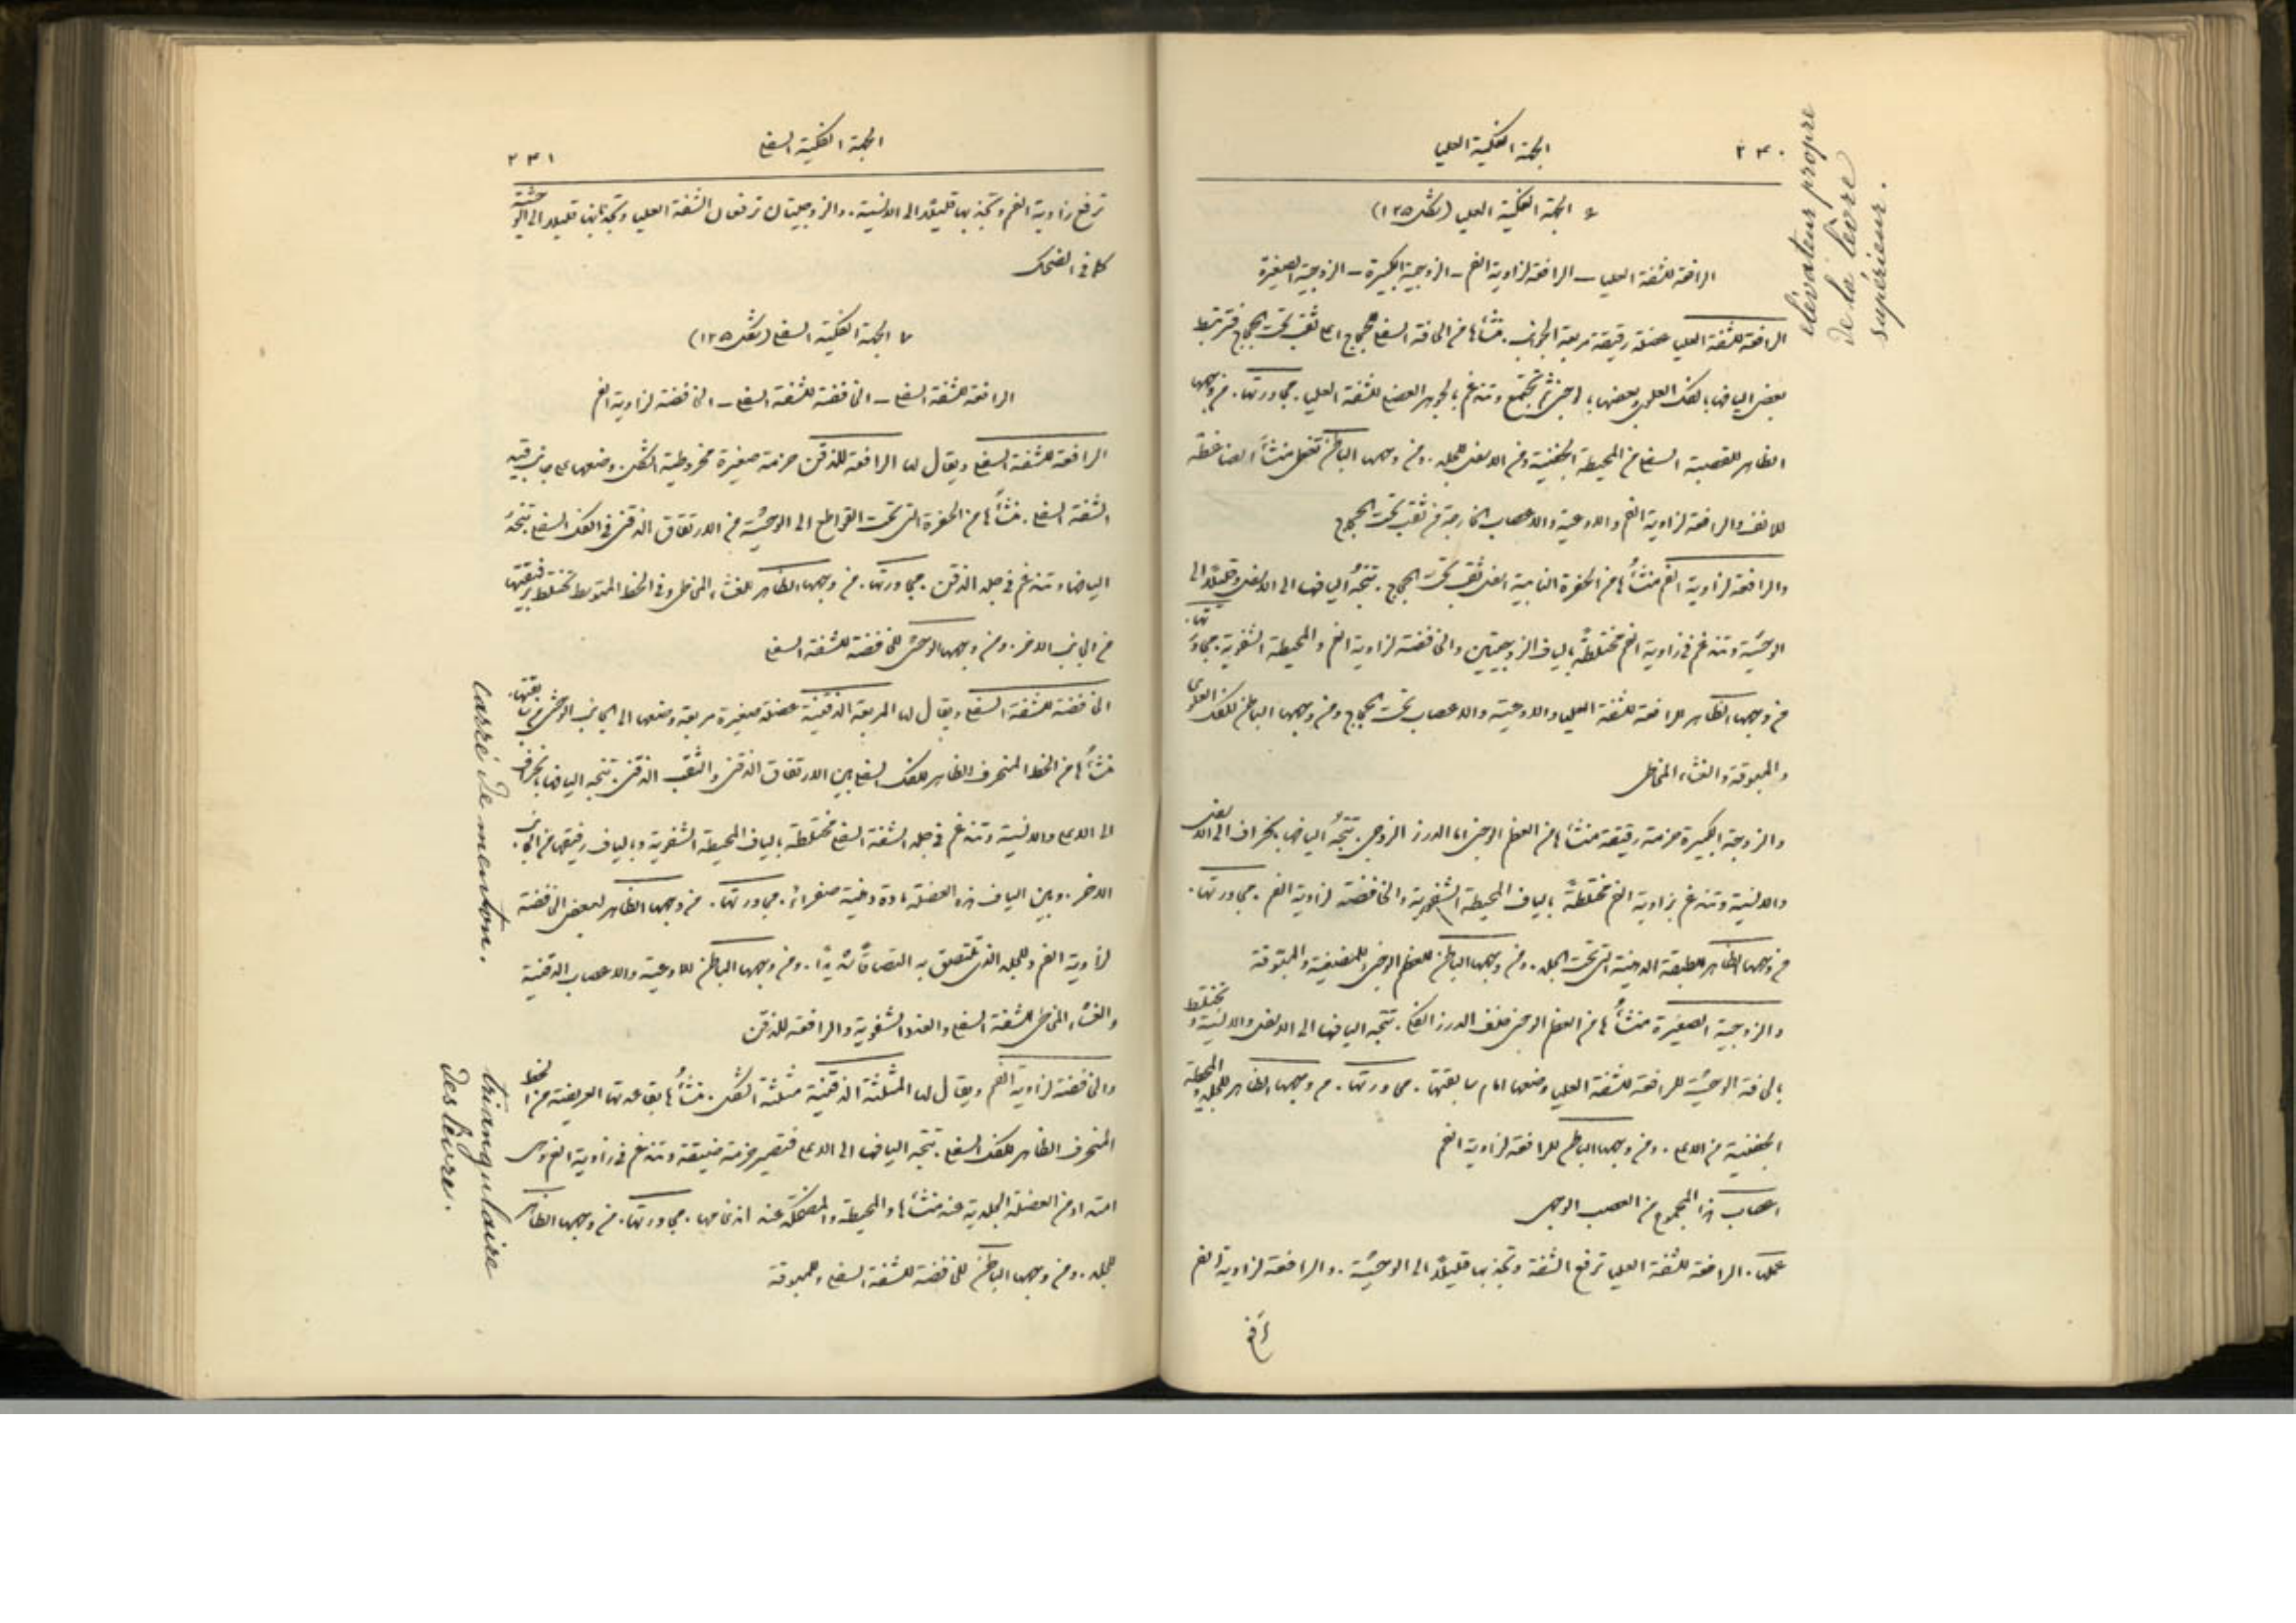 ٢٣٠
الجهة الفكية العليا
٦ الجهة الفكية العليا (شكل ١٢٥)
الرافعة للشفة العليا — الرافعة لزاوية الفم — الزوجية الكبيرة — الزوجية الصغيرة
الرافعة للشفة العليا عضلة رقيقة مربعة الجوانب . منشأها من الحافة السفلى للحجاج اعلى ثقب تحت الحجاج فترتبط
بعض اليافها بالفك العلوي وبعضها بالوجني ثم تجتمع وتندغم بالجوهر العضلي للشفة العليا . مجاورتها . من وجهها
الظاهر للقصبة السفلى من المحيطة الجفنية ومن الاسفل للجلد . ومن وجهها الباطن تغطي منشأ الضاغطة
للانف والرافعة لزاوية الفم والاوعية والاعصاب الخارجة من ثقب تحت الحجاج
والرافعة لزاوية الفم منشأُها من الحفرة النابية اسفل ثقب تحت الحجاج . تتجهُ اليافها الى الاسفل وقليلًا الى
الوحشيَّة وتندغم في زاوية الفم مختلطةً بالياف الزوجيتين والخافضة لزاوية الفم والمحيطة الشفوية . مجاورتها .
من وجهها الظاهر للرافعة للشفة العليا والاوعية والاعصاب تحت الحجاج ومن وجهها الباطن للفك العلوي
والمبوقة والغشاء المخاطي
والزوجية الكبيرة حزمة رقيقة منشأها من العظم الوجني اما الدرز الزوجي . تتجهُ اليافها بانحراف الى الاسفل
والانسية وتندغم بزاوية الفم مختلطةً بالياف المحيطة الشفوية والخافضة لزاوية الفم . مجاورتها .
من وجهها الظاهر للطبقة الدهنية التي تحت الجلد . ومن وجهها الباطن للعظم الوجني وللمضيغية والمبوقة
والزوجية الصغيرة منشأُها من العظم الوجني خلف الدرز الفكي . تتجه اليافها الى الاسفل والانسية وتختلط
بالحافة الوحشيَّة للرافعة للشفة العليا وضعها امام سابقتها . مجاورتها . من وجهها الظاهر للجلد والمحيطة
الجفنية من الاعلى . ومن وجهها الباطن للرافعة لزاوية الفم
اعصاب هذا المجموع من العصب الوجهي
عملها . الرافعة للشفة العليا ترفع الشفة وتجذبها قليلًا الى الوحشيَّة . والرافعة لزاوية الفم
élévateur propre
de la lèvre
supérieur.
٢٣١
الجهة الفكية السفلى
ترفع زاوية الفم وتجذبها قليلًا الى الانسية . والزوجيتان ترفعان الشفة العليا وتجذبانها قليلًا الى الوحشية
كما في الضحك
٧ الجهة الفكية السفلى (شكل ١٢٥)
الرافعة للشفة السفلى — الخافضة للشفة السفلى — الخافضة لزاوية الفم
الرافعة للشفة السفلى ويقال لها الرافعة للذقن حزمة صغيرة مخروطية الشكل . وضعها على جانبي قيد
الشفة السفلى . منشأُها من الحفرة التي تحت القواطع الى الوحشيَّة من الارتفاق الذقني في الفك السفلي تتجهُ
اليافها وتندغم في جلد الذقن . مجاورتها . من وجهها الظاهر للغشاء المخاطي وفي الخط المتوسط تختلط برفيقتها
من الجانب الاخر . ومن وجهها الوحشي للخافضة للشفة السفلى
الخافضة للشفة السفلى ويقال لها المربعة الذقنية عضلة صغيرة مربعة وضعها الى الجانب الوحشي من سابقتها .
منشأُها من الخط المنحرف الظاهر للفك السفلي بين الارتفاق الذقني والثقب الذقني . تتجه اليافها بانحراف
الى الاعلى والانسية وتندغم في جلد الشفة السفلى مختلطة بالياف المحيطة الشفوية وبالياف رفيقتها من الجانب
الاخر . وبين الياف هذه العضلة مادة دهنية صفراء . مجاورتها . من وجهها الظاهر لبعض الخافضة
لزاوية الفم وللجلد الذي تلتصق به التصاقًا شديدًا . ومن وجهها الباطن للاوعية والاعصاب الذقنية
والغشاء المخاطي للشفة السفلى والغدد الشفوية والرافعة للذقن
والخافضة لزاوية الفم ويقال لها المثلثة الذقنية مثلثة الشكل . منشأُها بقاعدتها العريضة من الخط
المنحرف الظاهر للفك السفلي . تتجه اليافها الى الاعلى فتصير حزمة ضيقة وتندغم في زاوية الفم وهي
امتداد من العضلة الجلدية عند منشأها والمحيطة والمضحكة عند اندغامها . مجاورتها . من وجهها الظاهر
للجلد . ومن وجهها الباطن للخافضة للشفة السفلى وللمبوقة
carré de menton.
triangulaire
des lèvre.